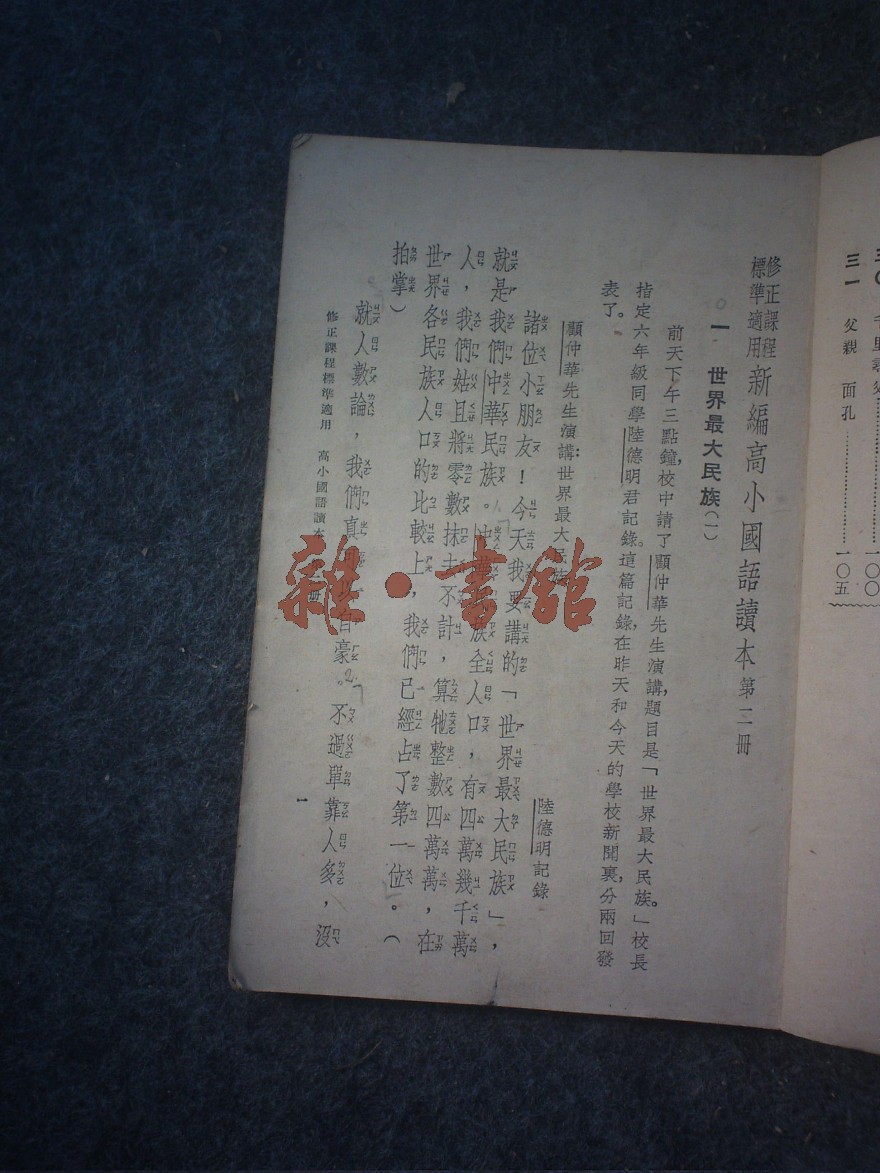 三〇
三一 父親 面孔……………一〇五
一〇〇
修正課程標準適用 新編高小國語讀本 第三冊
一 世界最大民族(一)
前天下午三點鐘,校中請了顧仲華先生演講,題目是「世界最大民族。」校長
指定六年級同學陸德明君記錄。這篇記錄,在昨天和今天的學校新聞裏,分兩回發
表了。
顧仲華先生演講:世界最大民族
陸德明記錄
諸位小朋友!今天我要講的「世界最大民族」,
就是我們中華民族。中華民族全人口,有四萬萬幾千萬
人,我們姑且將零數抹去不計,算牠整數四萬萬,在
世界各民族人口的比較上,我們已經占了第一位。(
拍掌)
就人數論,我們真自豪。不過單靠人多,沒
修正課程標準適用 高小國語讀本
一
雜·書館